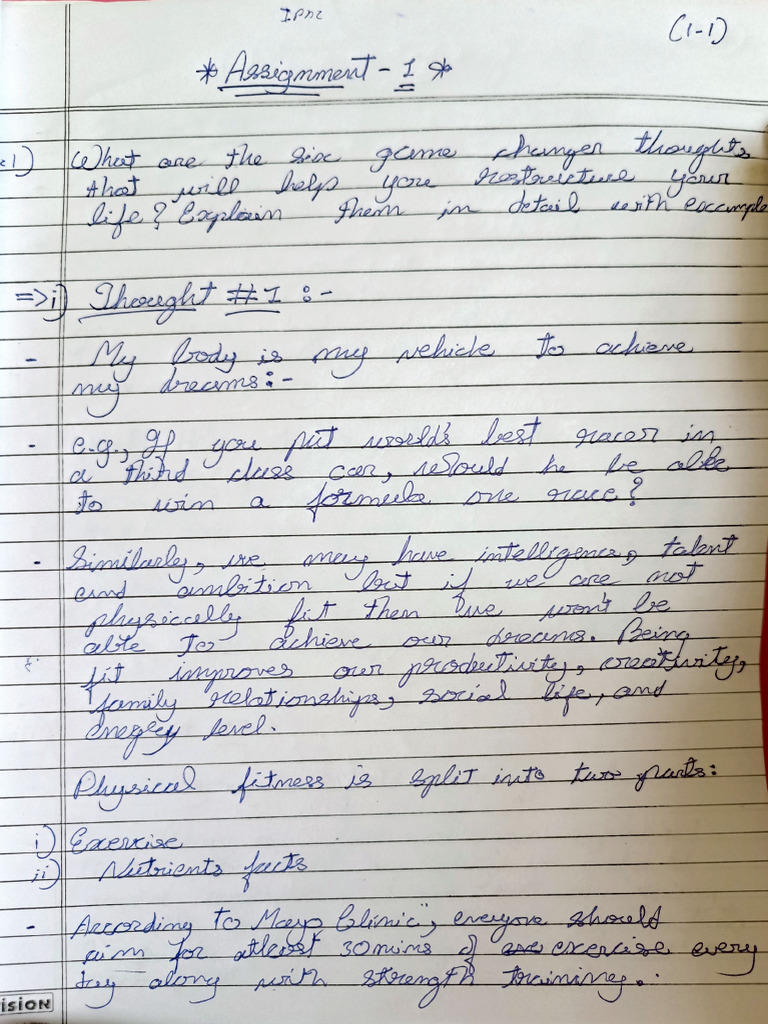 (1-1)
* Assignment - 1 *
1) What are the six game changer thoughts
that will help you restructure your
life? Explain them in detail with example
=> i) Thought #1 :-
- My body is my vehicle to achieve
my dreams:-
- e.g., If you put world's best racer in
a third class car, would he be able
to win a formula one race?
- Similarly, we may have intelligence, talent
and ambition but if we are not
physically fit then we won't be
able to achieve our dreams. Being
fit improves our productivity, creativity,
family relationships, social life, and
energy level.
Physical fitness is split into two parts:
i) Exercise
ii) Nutrients facts
- According to Mayo Clinic", everyone should
aim for atleast 30mins of exercise every
day along with strength training.
ISION